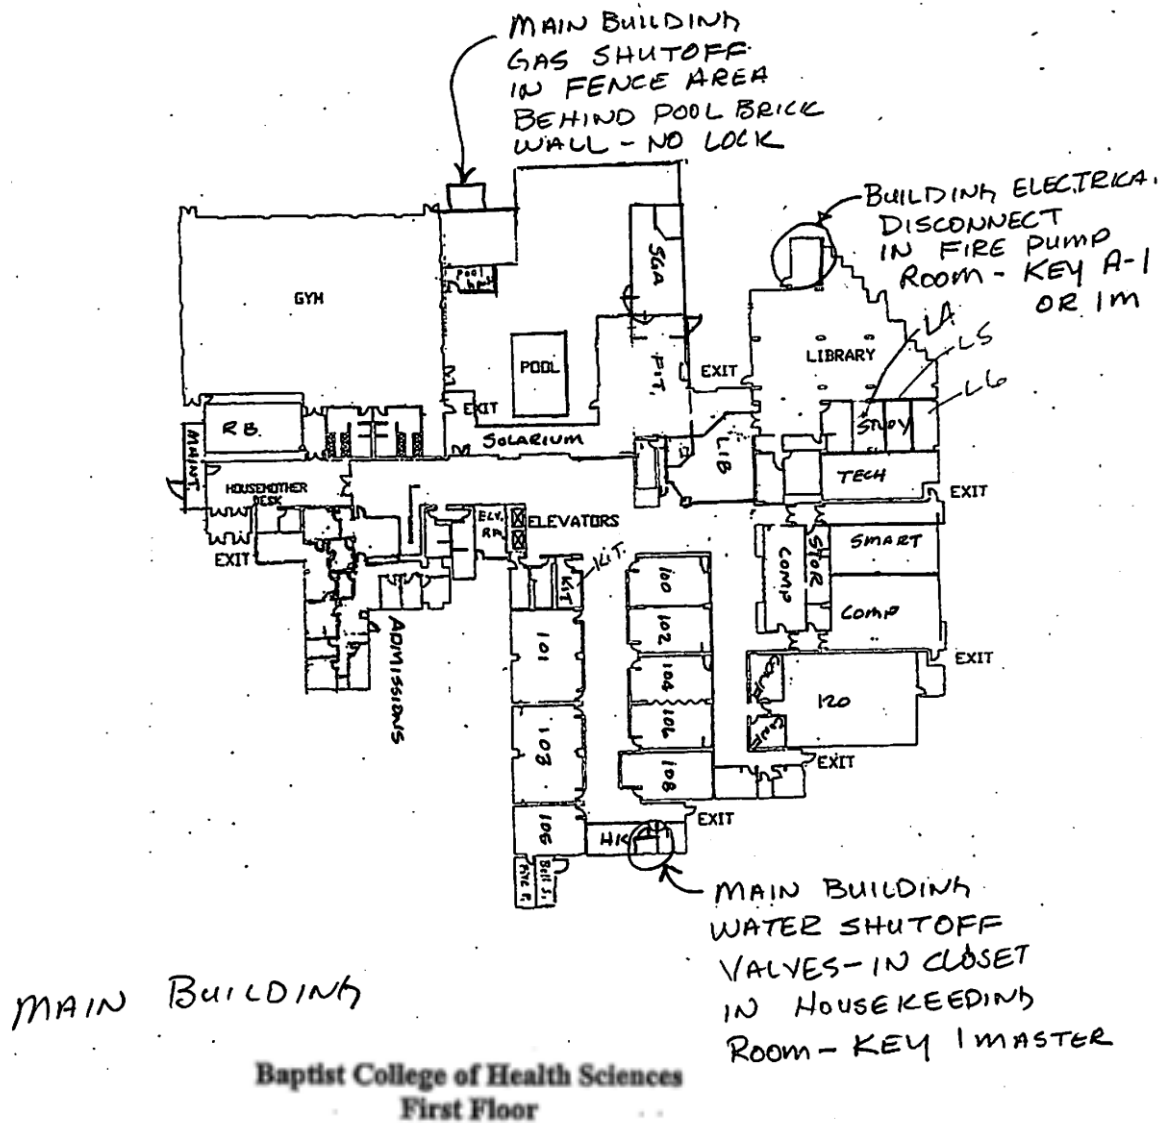 MAIN BUILDING
GAS SHUTOFF
IN FENCE AREA
BEHIND POOL BRICK
WALL - NO LOCK
BUILDING ELECTRICA.
DISCONNECT
IN FIRE PUMP
ROOM - KEY A-1
OR 1M
LA
L5
L6
GYM
POOL
SGA
P.I.T.
EXIT
LIBRARY
POOL
EXIT
SOLARIUM
R.B.
MAINT.
HOUSEMOTHER
DESK
LIB
STUDY
TECH
EXIT
ELV.
RM
ELEVATORS
EXIT
KIT.
KIT
COMP
STOR
SMART
COMP
ADMISSIONS
100
101
102
104
103
106
108
105
120
CONF
CONF
EXIT
EXIT
EXIT
HK
Bell S.
MAIN BUILDING
WATER SHUTOFF
VALVES - IN CLOSET
IN HOUSEKEEPING
ROOM - KEY 1 MASTER
MAIN BUILDING
Baptist College of Health Sciences
First Floor